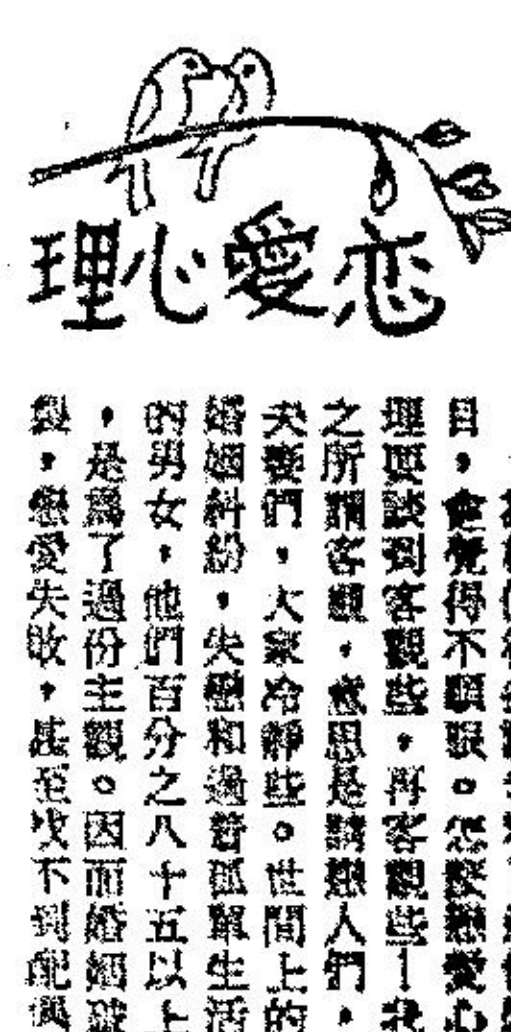 恋愛心理
目，會覺得不順眼。怎麼戀愛心
理要談到客觀些，再客觀些！我
之所謂客觀，意思是請戀人們，
夫妻們，大家冷靜些。世間上的
婚姻糾紛，失戀和過着孤單生活
的男女，他們百分之八十五以上
，是為了過份主觀。因而婚姻破
裂，戀愛失敗，甚至找不到配偶